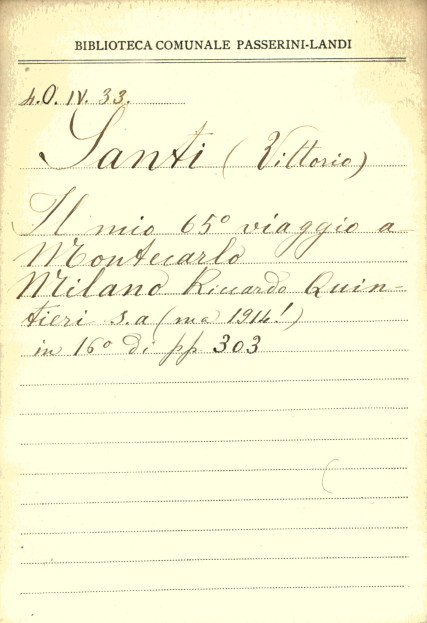 BIBLIOTECA COMUNALE PASSERINI-LANDI
4.O. IV. 33.
Santi (Vittorio)
Il mio 65º viaggio a
Montecarlo
Milano Riccardo Quin-
tieri s.a (ma 1914!)
in 16º di pp 303